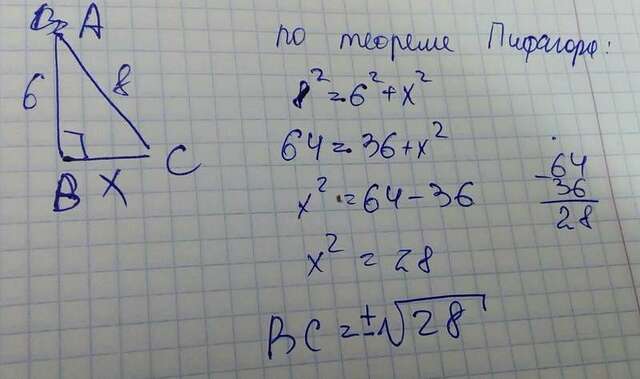 A
6
8
B
X
C
по теореме Пифагора:
8²=6²+x²
64=36+x²
x²=64-36
x²=28
BC=±√28
-64
36
28